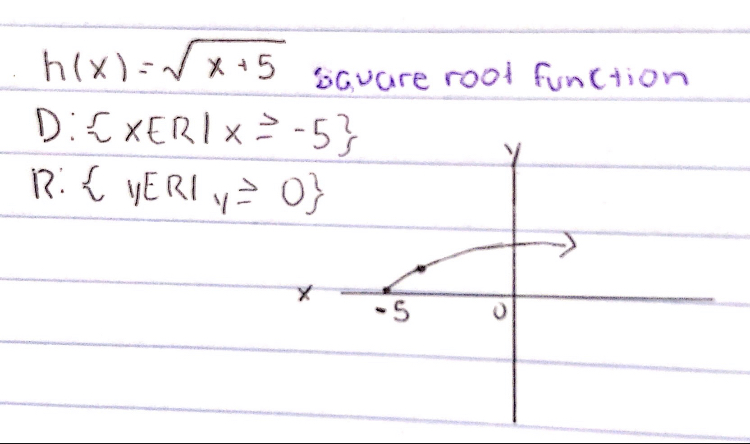 h(x)=√x+5 square root function
D:{xER|x≥-5}
R:{yER|y≥0}
y
x
-5 0